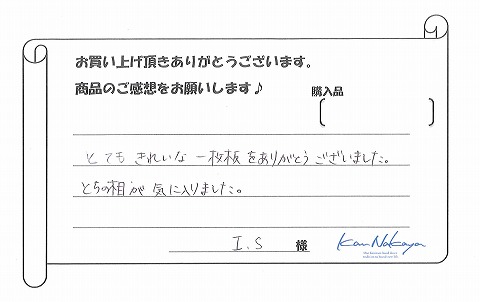 お買い上げ頂きありがとうございます。
商品のご感想をお願いします♪
購入品
とても きれいな 一枚板 をありがとう ございました。
とちの相が 気に入りました。
I.S 様
Kan Nakaya